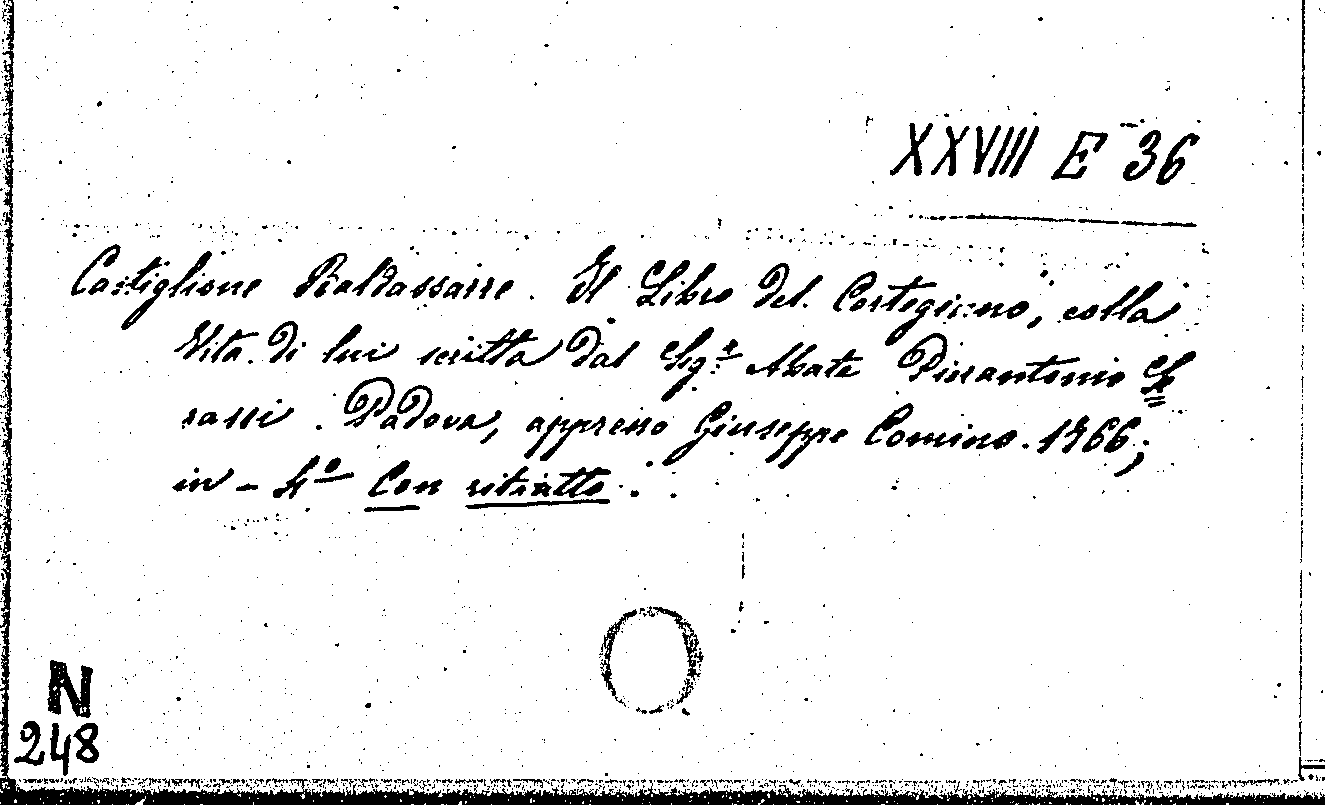 XXVIII E 36
Castiglione Baldassarre. Il Libro del Cortegiano, colla
Vita di lui scritta dal Sigr Abate Pierantonio Se=
rassi. Padova, appresso Giuseppe Comino. 1766;
in-4º Con ritratto.
N
248